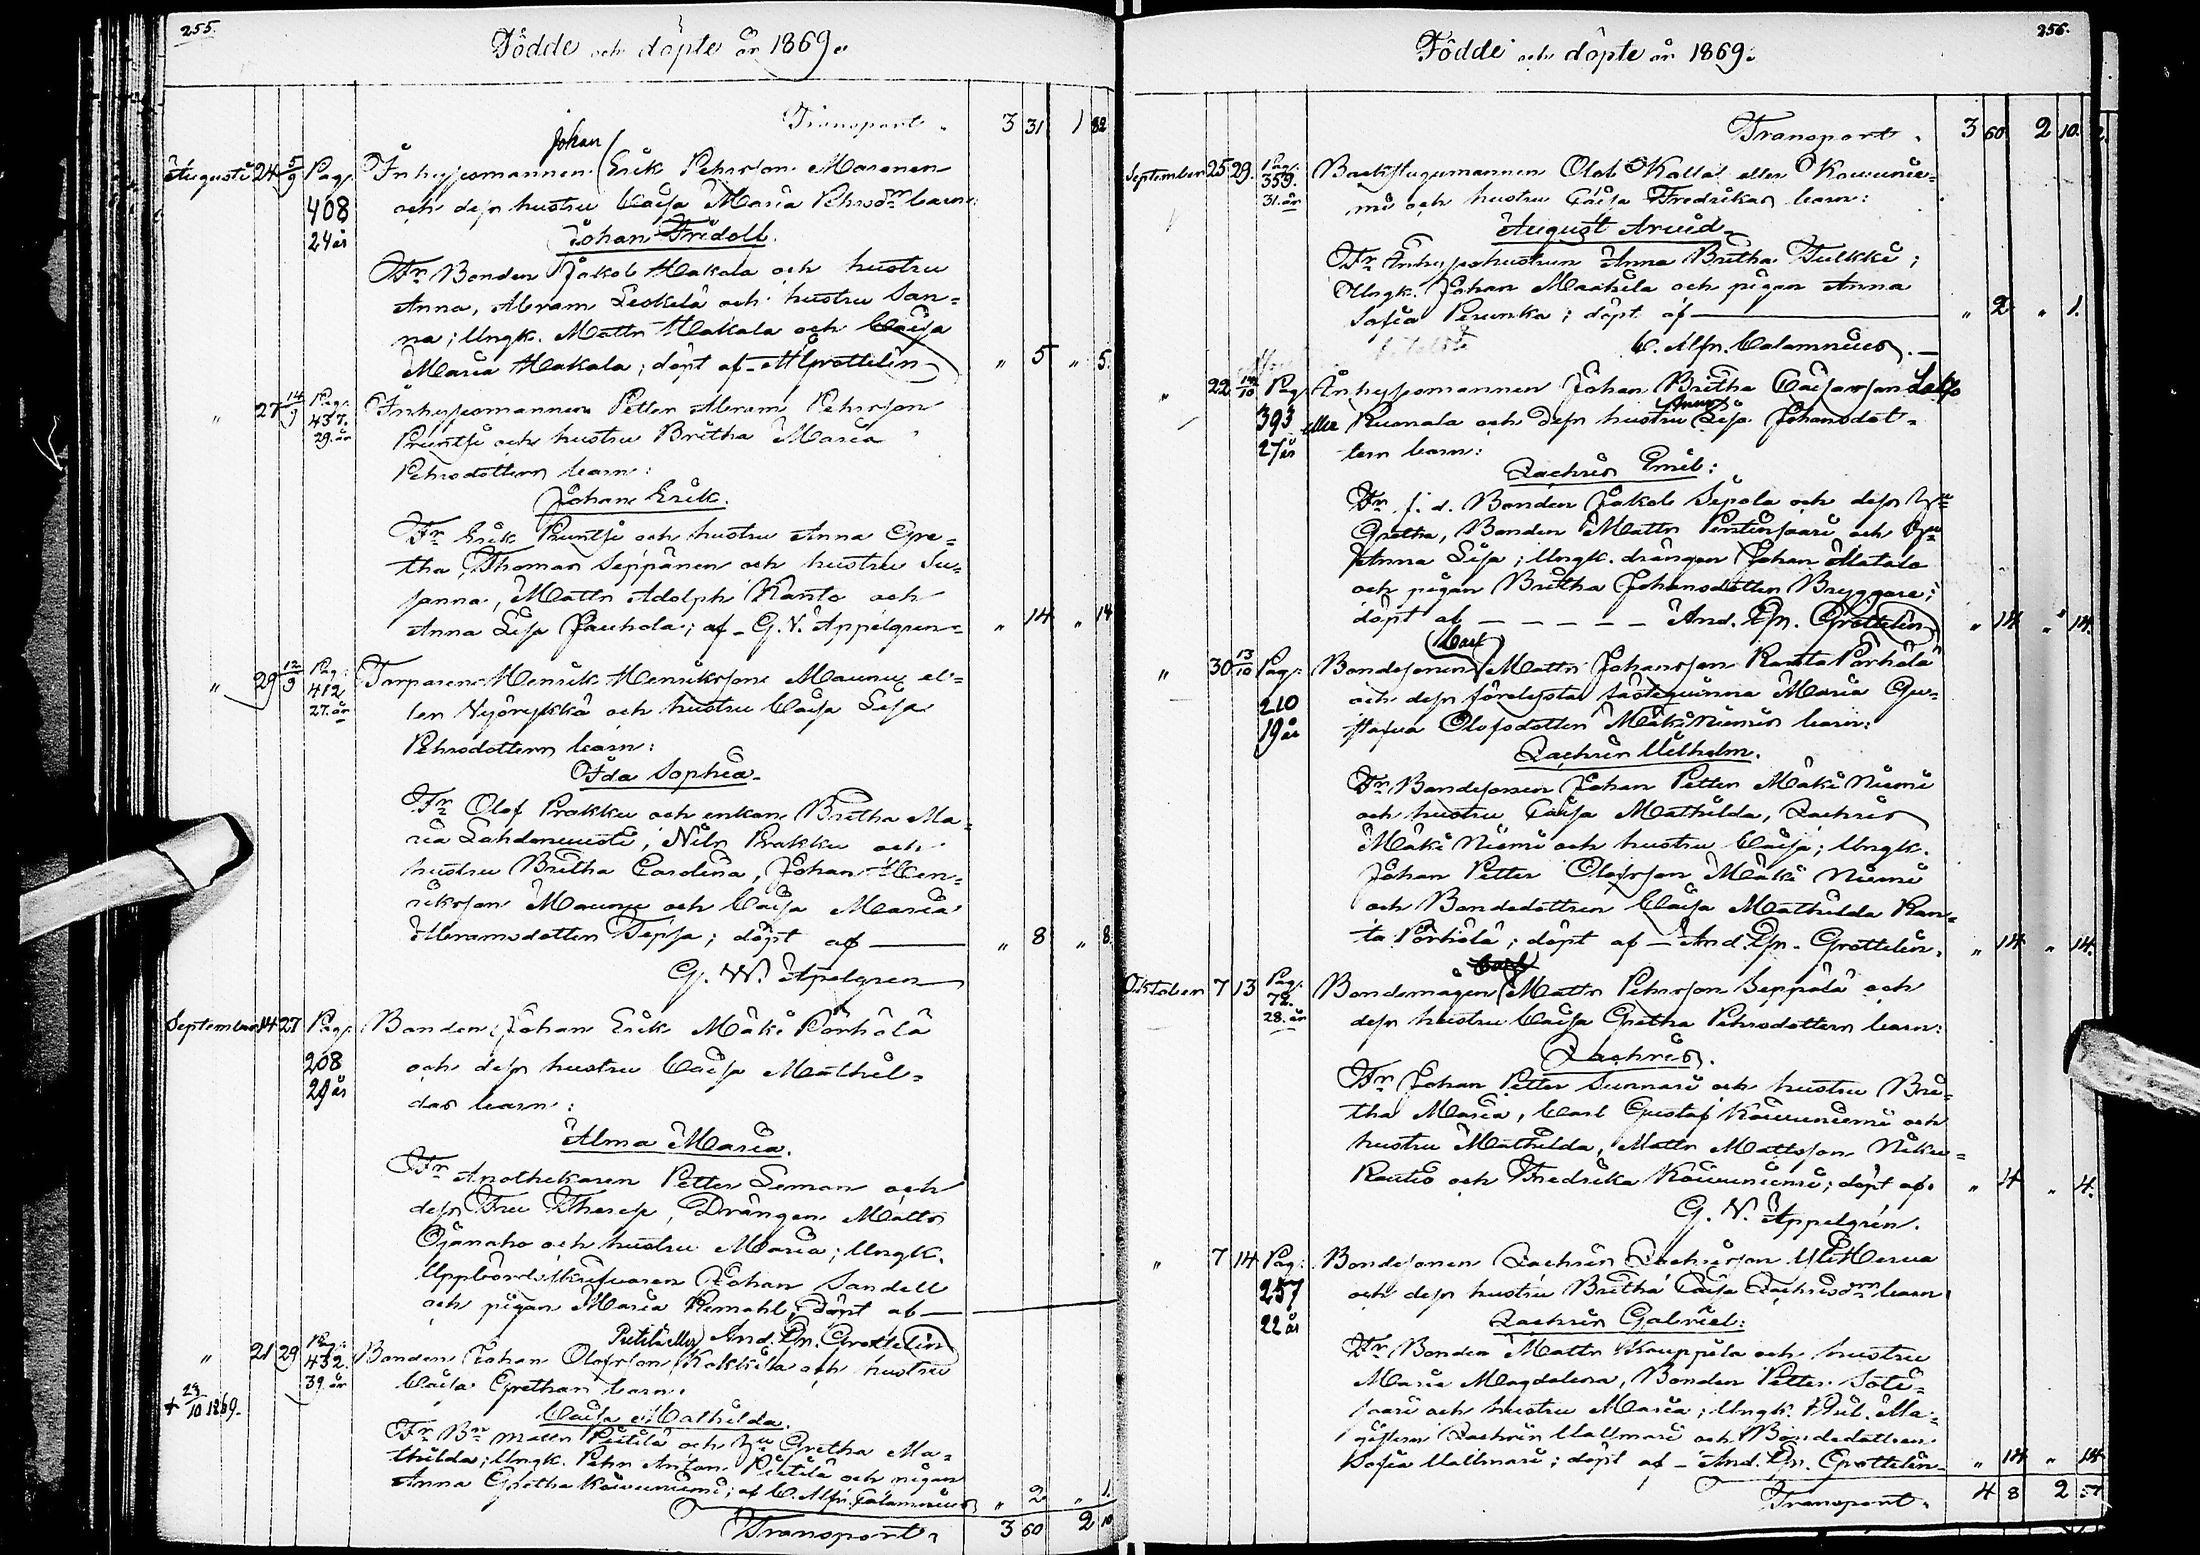 255.
Födde och döpte år 1869.
Transport. 3 31 1 82
Johan
Augusti 24 5/9 Pag. Inhysesmannen Erik Pehrsson Maronen
408 och dess hustru Caisa Maria Pehrsdrs barn:
24 år Johan Fridolf.
Fr. Bonden Jakob Hakala och hustru
Anna, Abram Leskelä och hustru San-
na; Ungk. Matts Hakala och Caisa
Maria Hakala; döpt af A Grottelin " 5 " 5.
" 27 14/9 Pag. 437. 29. år Inhysesmannen Petter Abram Pehrsson
Pruntsi och hustru Britha Maria
Pehrsdotters barn:
Johan Erik.
Fr. Erik Pruntsi och hustru Anna Gre-
tha, Thomas Seppänen och hustru Su-
sanna, Matts Adolph Ranto och
Anna Lisa Jauhola; af G. W. Appelgren " 14 " 14
" 29 12/9 Pag. 412 27. år Torparen Henrik Henriksson Maunu el-
ler Nyörykkä och hustru Caisa Lisa
Pehrsdotters barn:
Ida Sophia.
Fr. Olof Prokku och enkan Britha Ma-
ria Lahdensuusti, Nils Prakku och
hustru Britha Carolina, Johan Hen-
riksson Maunu och Caisa Maria
Abramsdotter Tepsa; döpt af " 8 " 8.
G. W. Appelgren
September 14 27 Pag. Bonden Johan Erik Mäki Pörhölä
208 och dess hustru Caisa Mathil-
29 år das barn:
Alma Maria.
Fr. Apothekaren Petter Leman och
dess Fru Therese, Drängen Matts
Ojanaho och hustru Maria; Ungk.
Uppbördsskrifvaren Johan Sandell
och pigan Maria Remahl; döpt af
Pietilä eller And. Joh. Grottelin
" 21 29 Pag. 432. 39. år Bonden Johan Olofsson Kokkila och hustru
Caisa Grethas barn:
+ 23/10 1869. Caisa Mathilda.
Fr. Bn Matts Pietilä och Hu Gretha Ma-
thilda; Ungk. Pehr Anton Pietilä och pigan
Anna Gretha Kouvuniemi; af C. Alfr. Calamnius " 2 " 1.
Transport. 3 60 2 10
256.
Födde och döpte år 1869.
Transport. 3 60 2 10.
September 25 29. Pag. 359. 31. år Backstugumannen Olof Kallo eller Kouvunie-
mi och hustru Caisa Fredrikas barn:
August Arvid.
Fr. Inhyseshustrun Anna Britha Tulkki;
Ungk. Johan Maahila och pigan Anna
Sofia Perunka; döpt af " 2 " 1.
C. Alfr. Calamnius.
" 22 14/10 Pag. Inhysesmannen Johan Britha Caisasson
393 eller Ruonala och dess hustru Anna Lisa Johansdot-
27 år ters barn:
Zachris Emil:
Fr. f. d. Bonden Jakob Sipola och dess Hu
Gretha, Bonden Matts Pentinsaari och Hu
Anna Lisa; Ungk. drängen Johan Matala
och pigan Britha Johansdotter Bryggare;
döpt af And. Joh. Grottelin " 14 " 14.
Carl
" 30 13/10 Pag. Bondesonen Matts Johansson Ranta Pörhölä
210 och dess förelysta fästeqvinna Maria Gu-
19 år stafva Olofsdotter Mäki Niemis barn:
Zachris Wilhelm.
Fr. Bondesonen Johan Petter Mäki Niemi
och hustru Caisa Mathilda, Zachris
Mäki Niemi och hustru Caisa; Ungk.
Johan Petter Olofsson Mäki Niemi
och Bondedottren Caisa Mathilda Ran-
ta Pörhölä; döpt af And. Joh. Grottelin. " 14 " 14.
Oktober 7 13 Pag. 72. 28. år Bondemågen Matts Pehrsson Seppälä och
dess hustru Caisa Gretha Pehrsdotters barn:
Zachris.
Fr. Johan Petter Sunnari och hustru Bri-
tha Maria, Carl Gustaf Kouvuniemi och
hustru Mathilda, Matts Mattsson Niku-
Rautio och Fredrika Kouvuniemi; döpt af " 4 " 4.
G. W. Appelgrén.
" 7 14 Pag. Bondesonen Zachris Zachrisson Uli Herva
257 och dess hustru Britha Caisa Zachrisdrs barn:
22 år Zachris Gabriel:
Fr. Bonden Matts Kauppila och hustru
Maria Magdalena, Bonden Petter Soti-
saari och hustru Maria; Ungk. Phil. Ma-
gistern Zachris Uallmari och Bondedottren
Sofia Uallmari; döpt af And. Joh. Grottelin " 14 " 14
Transport. 4 8 2 57